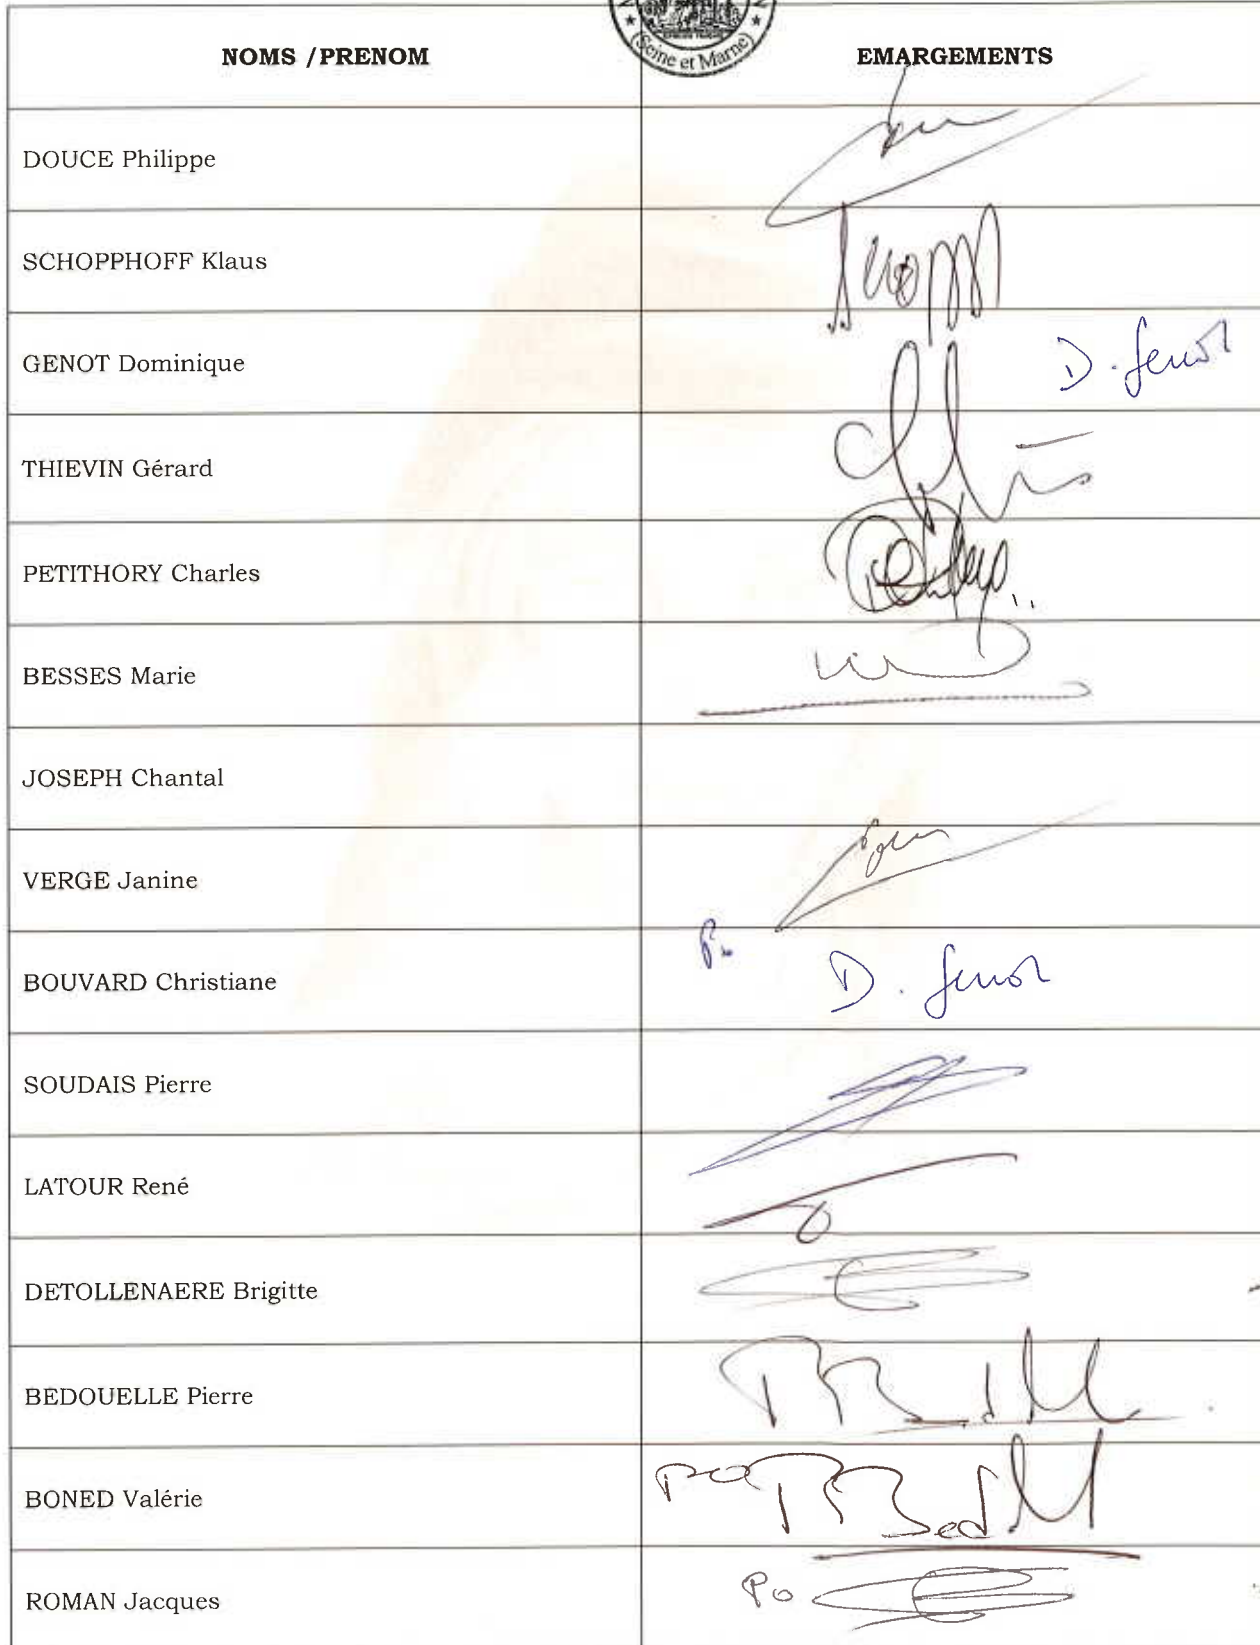 (Seine et Marne)
NOMS /PRENOM EMARGEMENTS
DOUCE Philippe
SCHOPPHOFF Klaus
GENOT Dominique D. Genot
THIEVIN Gérard
PETITHORY Charles
BESSES Marie
JOSEPH Chantal
VERGE Janine
BOUVARD Christiane Po D. Genot
SOUDAIS Pierre
LATOUR René
DETOLLENAERE Brigitte
BEDOUELLE Pierre
BONED Valérie PO
ROMAN Jacques Po